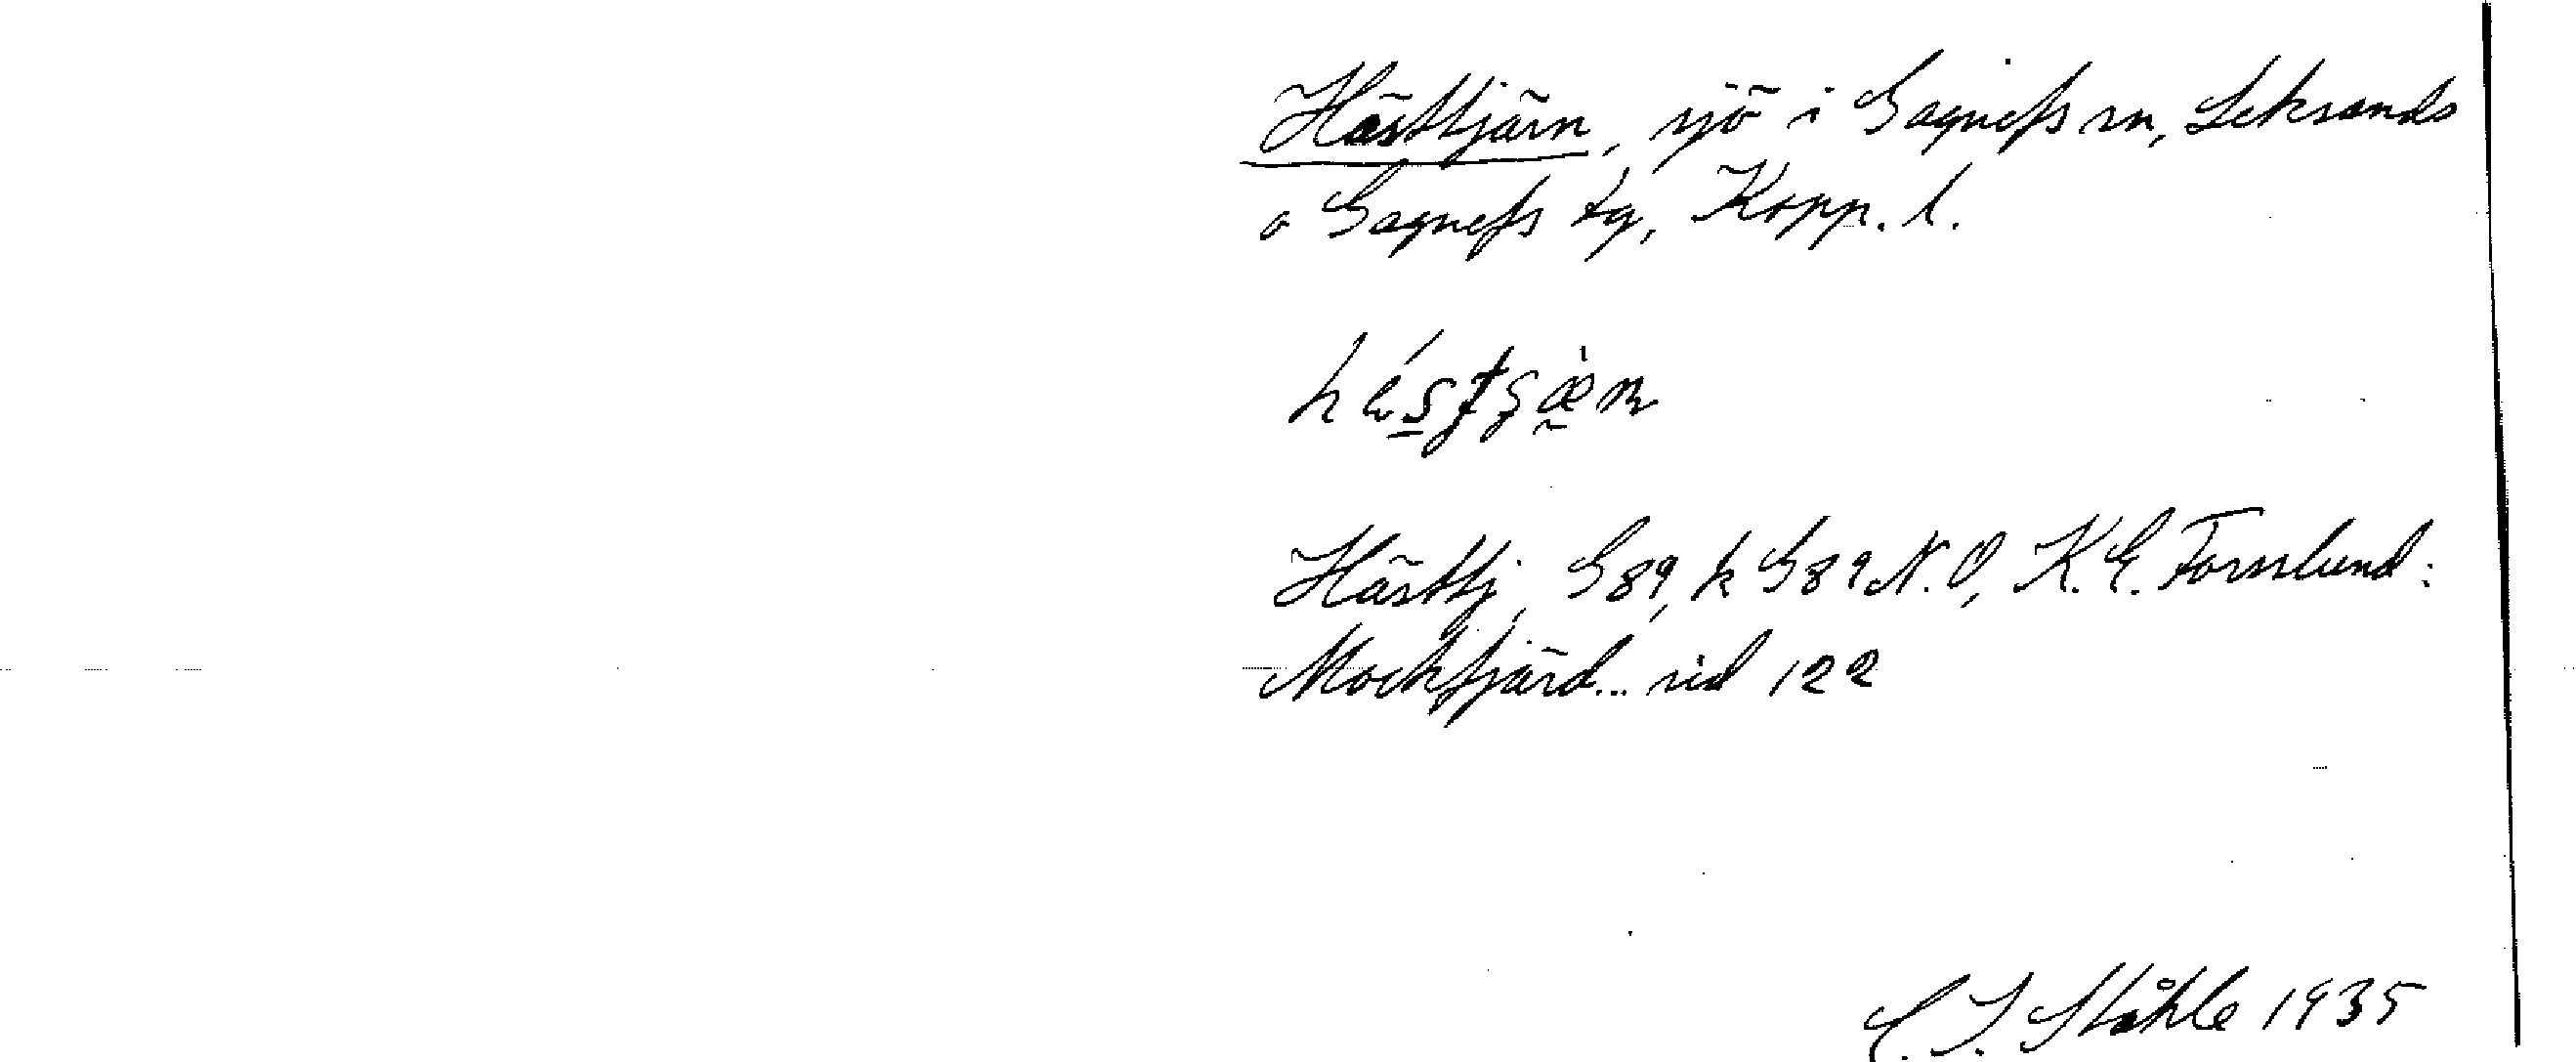 Hästtjärn, sjö i Gagnefs sn, Leksands
o Gagnefs tg, Kopp. l.
Hästtj, G89, k G89 N.O, K.E. Forsslund:
Mockfjärd... sid 122
C. I. Ståhle 1935